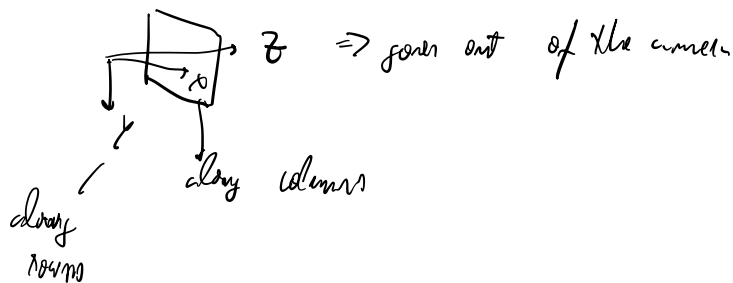 Z => goes out of the camera
X
Y
along columns
along
rows